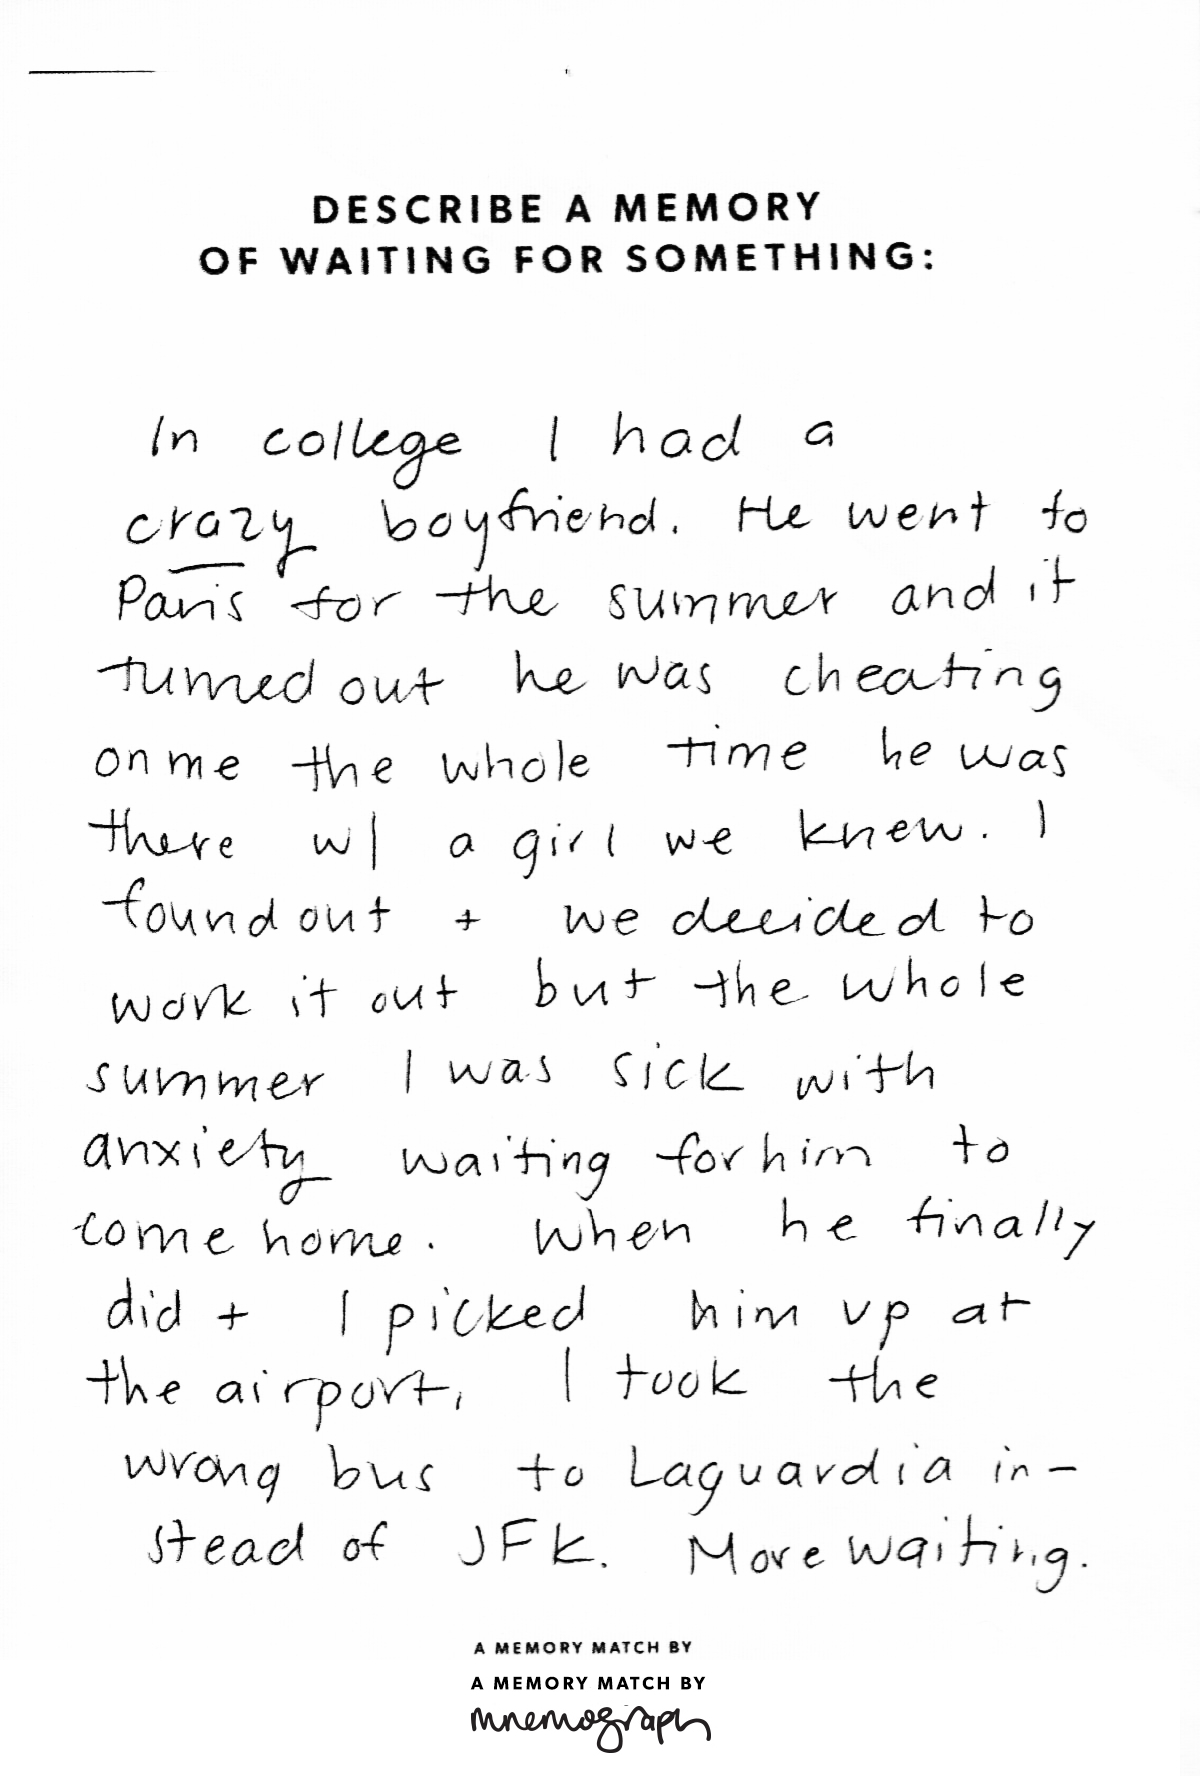 DESCRIBE A MEMORY
OF WAITING FOR SOMETHING:
In college I had a
crazy boyfriend. He went to
Paris for the summer and it
turned out he was cheating
on me the whole time he was
there w/ a girl we knew. I
found out + we decided to
work it out but the whole
summer I was sick with
anxiety waiting for him to
come home. When he finally
did + I picked him up at
the airport, I took the
wrong bus to Laguardia in-
stead of JFK. More waiting.
A MEMORY MATCH BY
A MEMORY MATCH BY
mnemograph